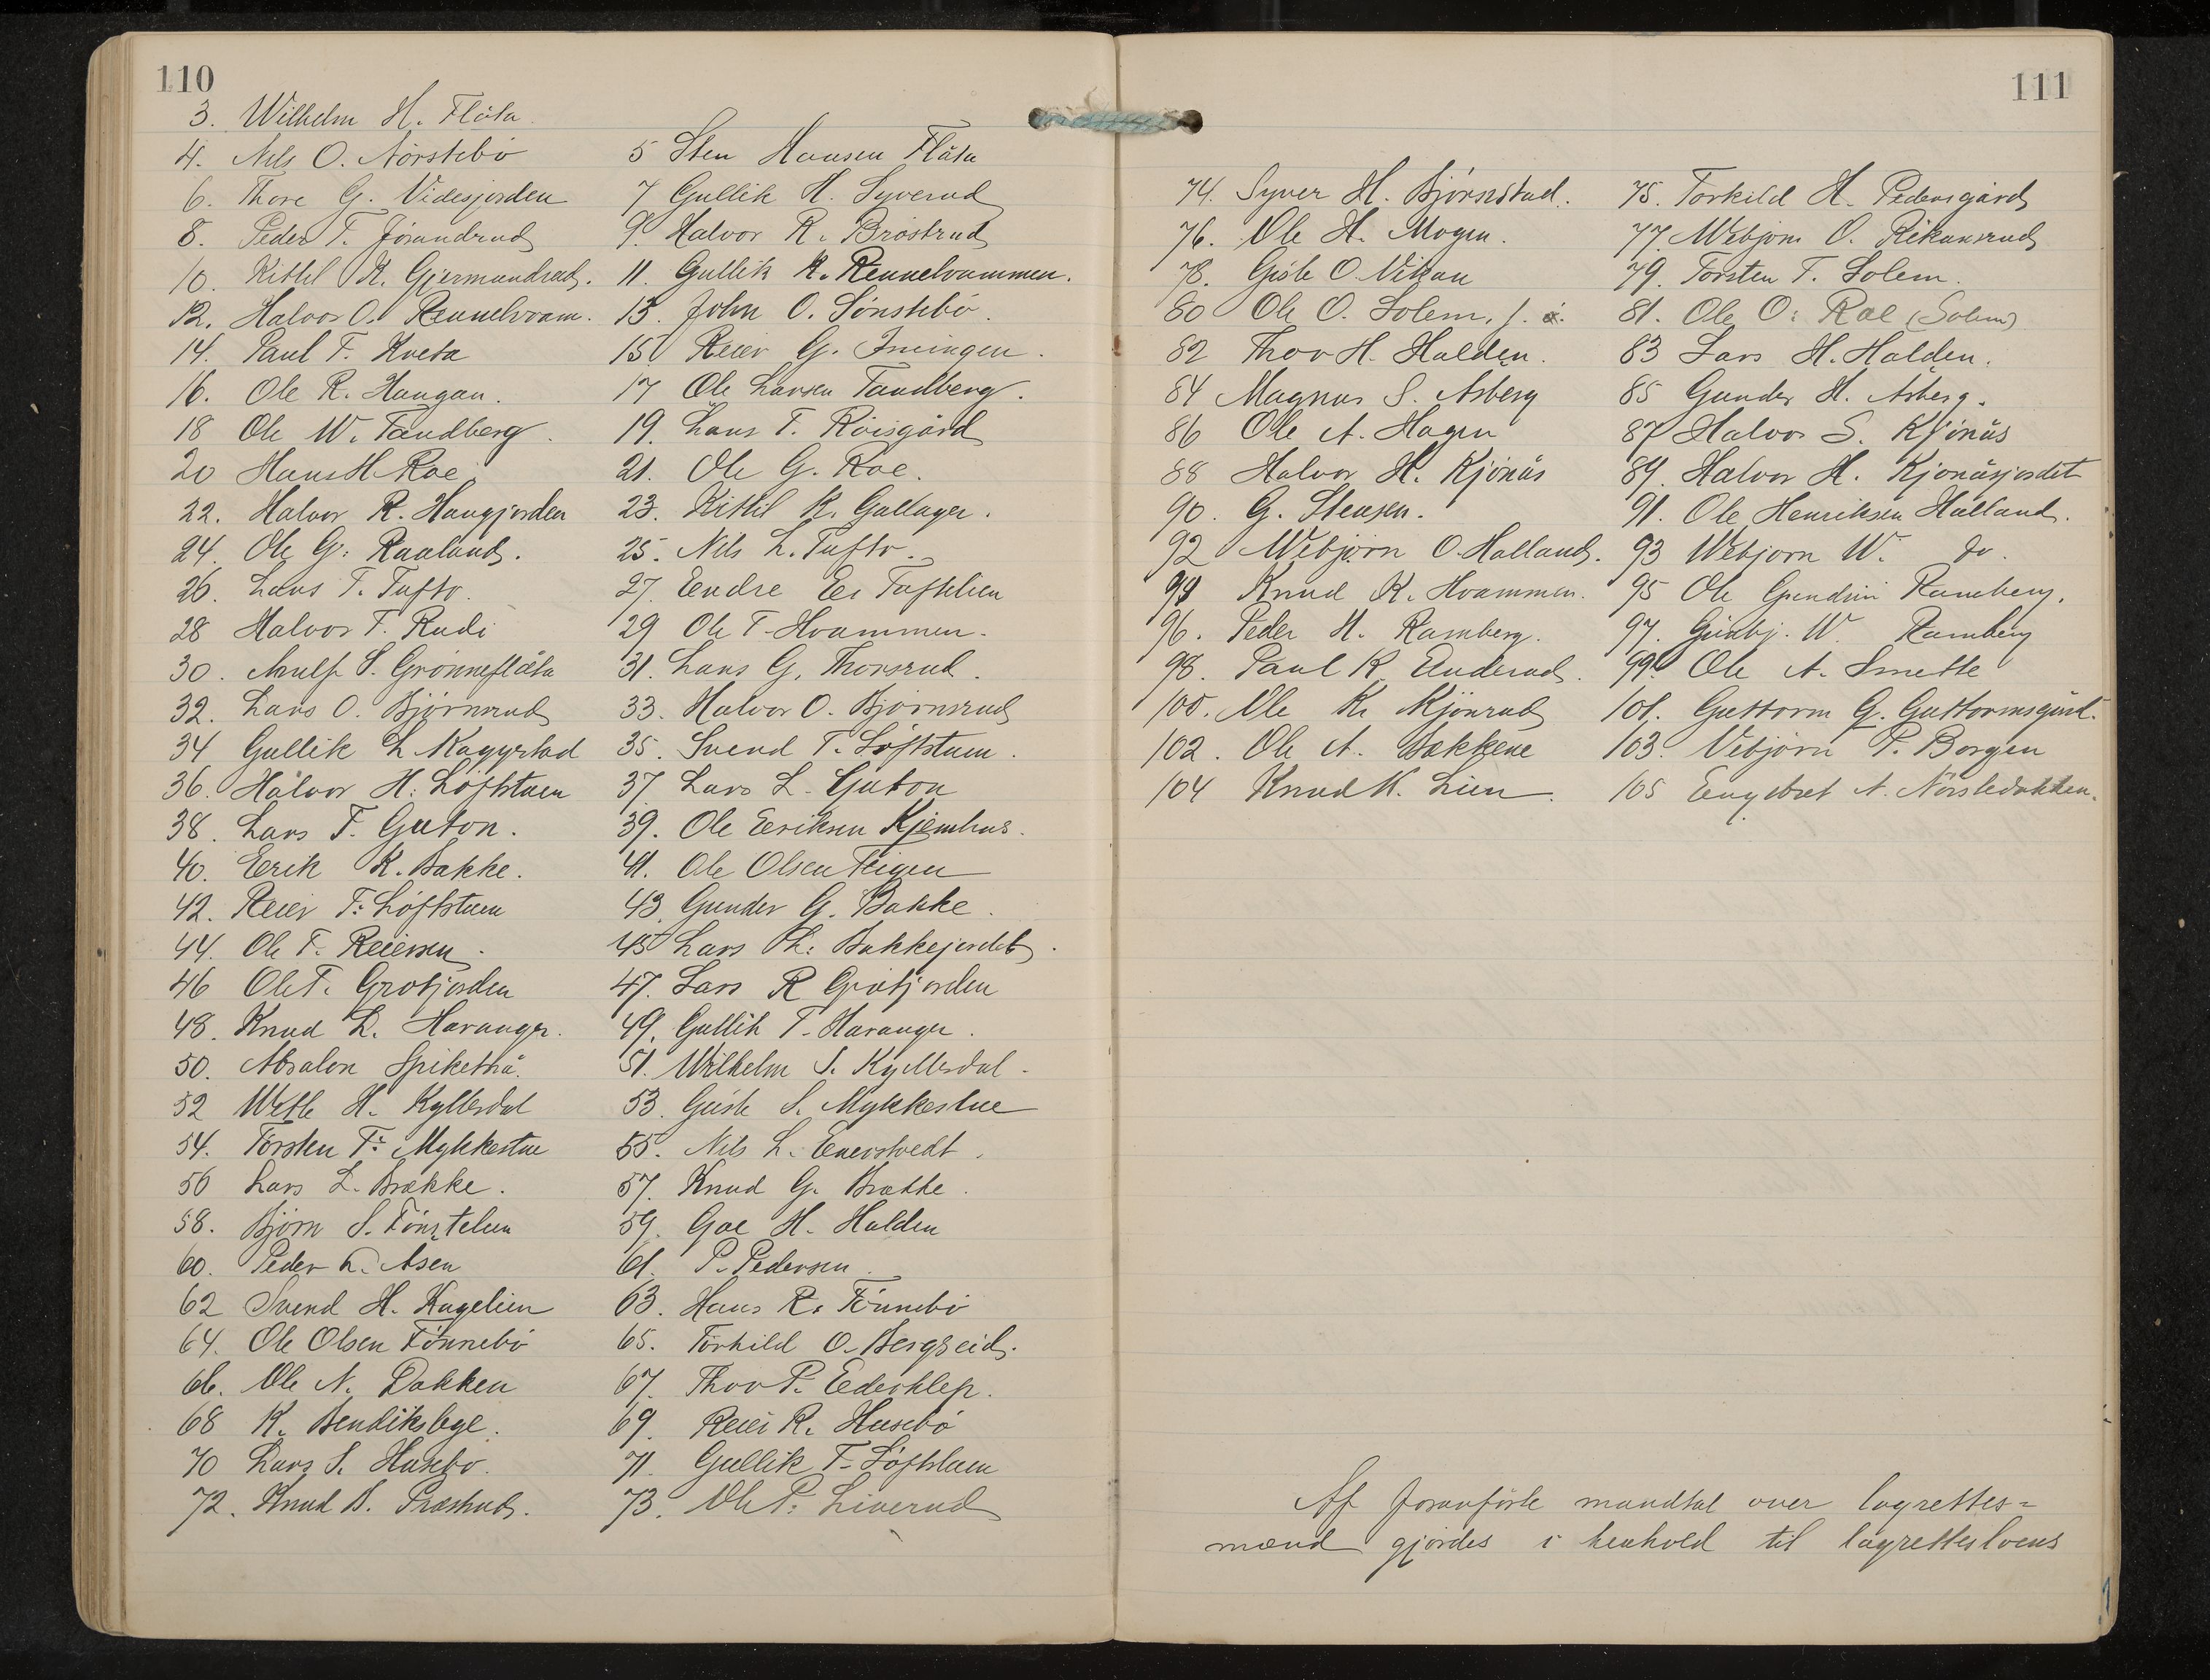 110
3. Wilhelm H. Flåta
4. Nils O. Nørstebø 5 Sten Hansen Flåta
6. Thore G. Videsjorden 7 Gullik H. Syverud
8. Peder T. Jørandrud 9. Halvor R. Brøstrud
10. Kittil K. Gjermundrud. 11. Gullik K. Rennelvammen.
12. Halvor O. Rennelvam. 13. John O. Sønstebø.
14. Paul T. Kveta 15 Reier G. Imingen.
16. Ole R. Haugan. 17 Ole Larsen Tandberg.
18 Ole W. Tandberg. 19. Lars T. Røisgård
20 Hans H. Roe. 21. Ole G. Roe.
22. Halvor R. Haugjorden 23. Kittil K. Gallager.
24. Ole G. Raaland. 25. Nils L. Tufto.
26. Lars T. Tufto. 27. Eendre E. Tuftelien
28 Halvor T. Rudi 29 Ole T. Hvammen.
30. S. Grønneflåta 31. Lars G. Thorsrud.
32. Lars O. Bjørnsrud 33. Halvor O. Bjørnsrud
34 Gullik L. Kaggestad 35. Svend T. Løftstuen.
36. Halvor H. Løftstuen 37. Lars L. Guton
38. Lars T. Guton. 39. Ole Eeriksen Kjemhus.
40. Eerik K. Bakke. 41. Ole Olsen Teigen
42. Reier T. Løftstuen 43. Gunder G. Bakke.
44. Ole T. Reiersen. 45 Lars Th. Bakkejordet.
46 Ole T. Grotjorden 47. Lars R Grotjorden
48. Knud L. Haranger. 49. Gullik T. Haranger.
50. Absalon Spikethå. 51. Wilhelm S. Kyllesdal.
52 Wetle H. Kyllesdal 53. Gisle S. Mykkestue
54. Torsten T. Mykkestue 55. Nils L. Enerstvedt.
56 Lars L. Brække. 57. Knud G. Brække.
58. Bjørn S. Tønstelien 59. Goe H. Halden
60. Peder L. Åsen 61. P. Pedersen.
62 Svend H. Hagelien 63. Hans R. Tønnebø
64. Ole Olsen Tønnebø 65. Torkild O. Bergseid.
66. Ole N. Dokken 67. Thor P. Eederklep.
68 K. Bendikslege. 69. Reier R. Husebø
70 Lars S. Husebø. 71. Gullik T. Løftstuen
72. Knud B. Præstrud. 73. Ole P. Liverud
111
74. Syver H. Bjørnstad. 75. Torkild H. Pedersgård
76. Ole H. Mogen. 77. Webjørn O. Rikansrud
78. Gisle O. Vikan 79. Torsten T. Solem.
80 Ole O. Solem, j. 81. Ole O. Roe (Solem)
82 Thor H. Halden. 83 Lars H. Halden.
84 Magnus S. Åsberg 85 Gunder H. Åsberg.
86 Ole A. Hagen 87 Halvor S. Kjønås
88 Halvor H. Kjønås 89. Halvor H. Kjønåsjordet
90. G. Stensen. 91. Ole Henriksen Halland.
92 Webjørn O. Halland. 93 Webjørn W. do.
94 Knud K. Hvammen. 95 Ole Ramberg.
96. Peder H. Ramberg. 97. W. Ramberg
98. Paul K. Enderud. 99. Ole A. Smette
100. Ole K. Mjønrud 101. Guttorm G. Guttormsgård.
102. Ole A. Bakkene 103. Vebjørn P. Borgen
104 Knud K. Lien. 105 Eengebret A. Nørstedokken.
Af foranførte mandtal over lagrettes-
mænd gjordes i henhold til lagretteslovens